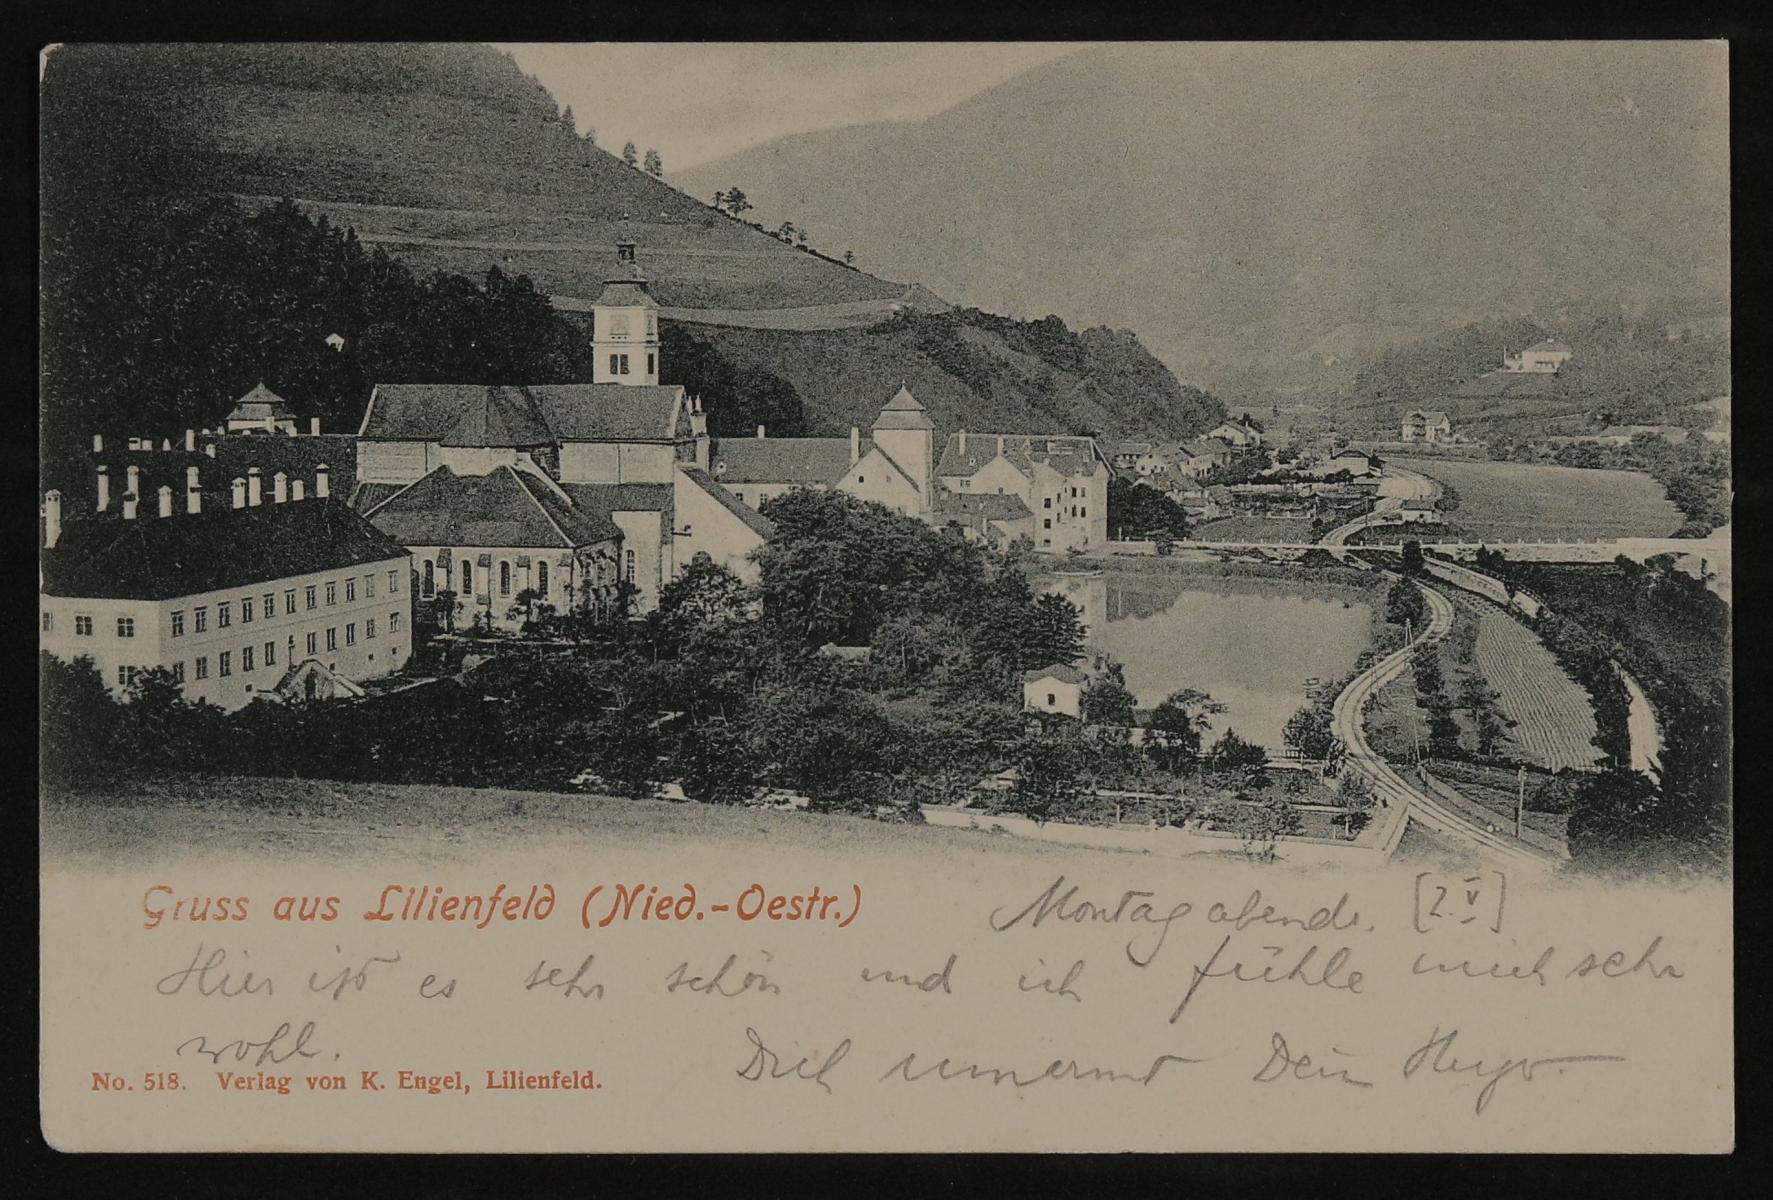 Gruss aus Lilienfeld (Nied.-Oestr.)
Montag abends. [2. V]
Hier ist es sehr schön und ich fühle mich sehr
wohl.
Dich umarmt Dein Hugo.
No. 518. Verlag von K. Engel, Lilienfeld.